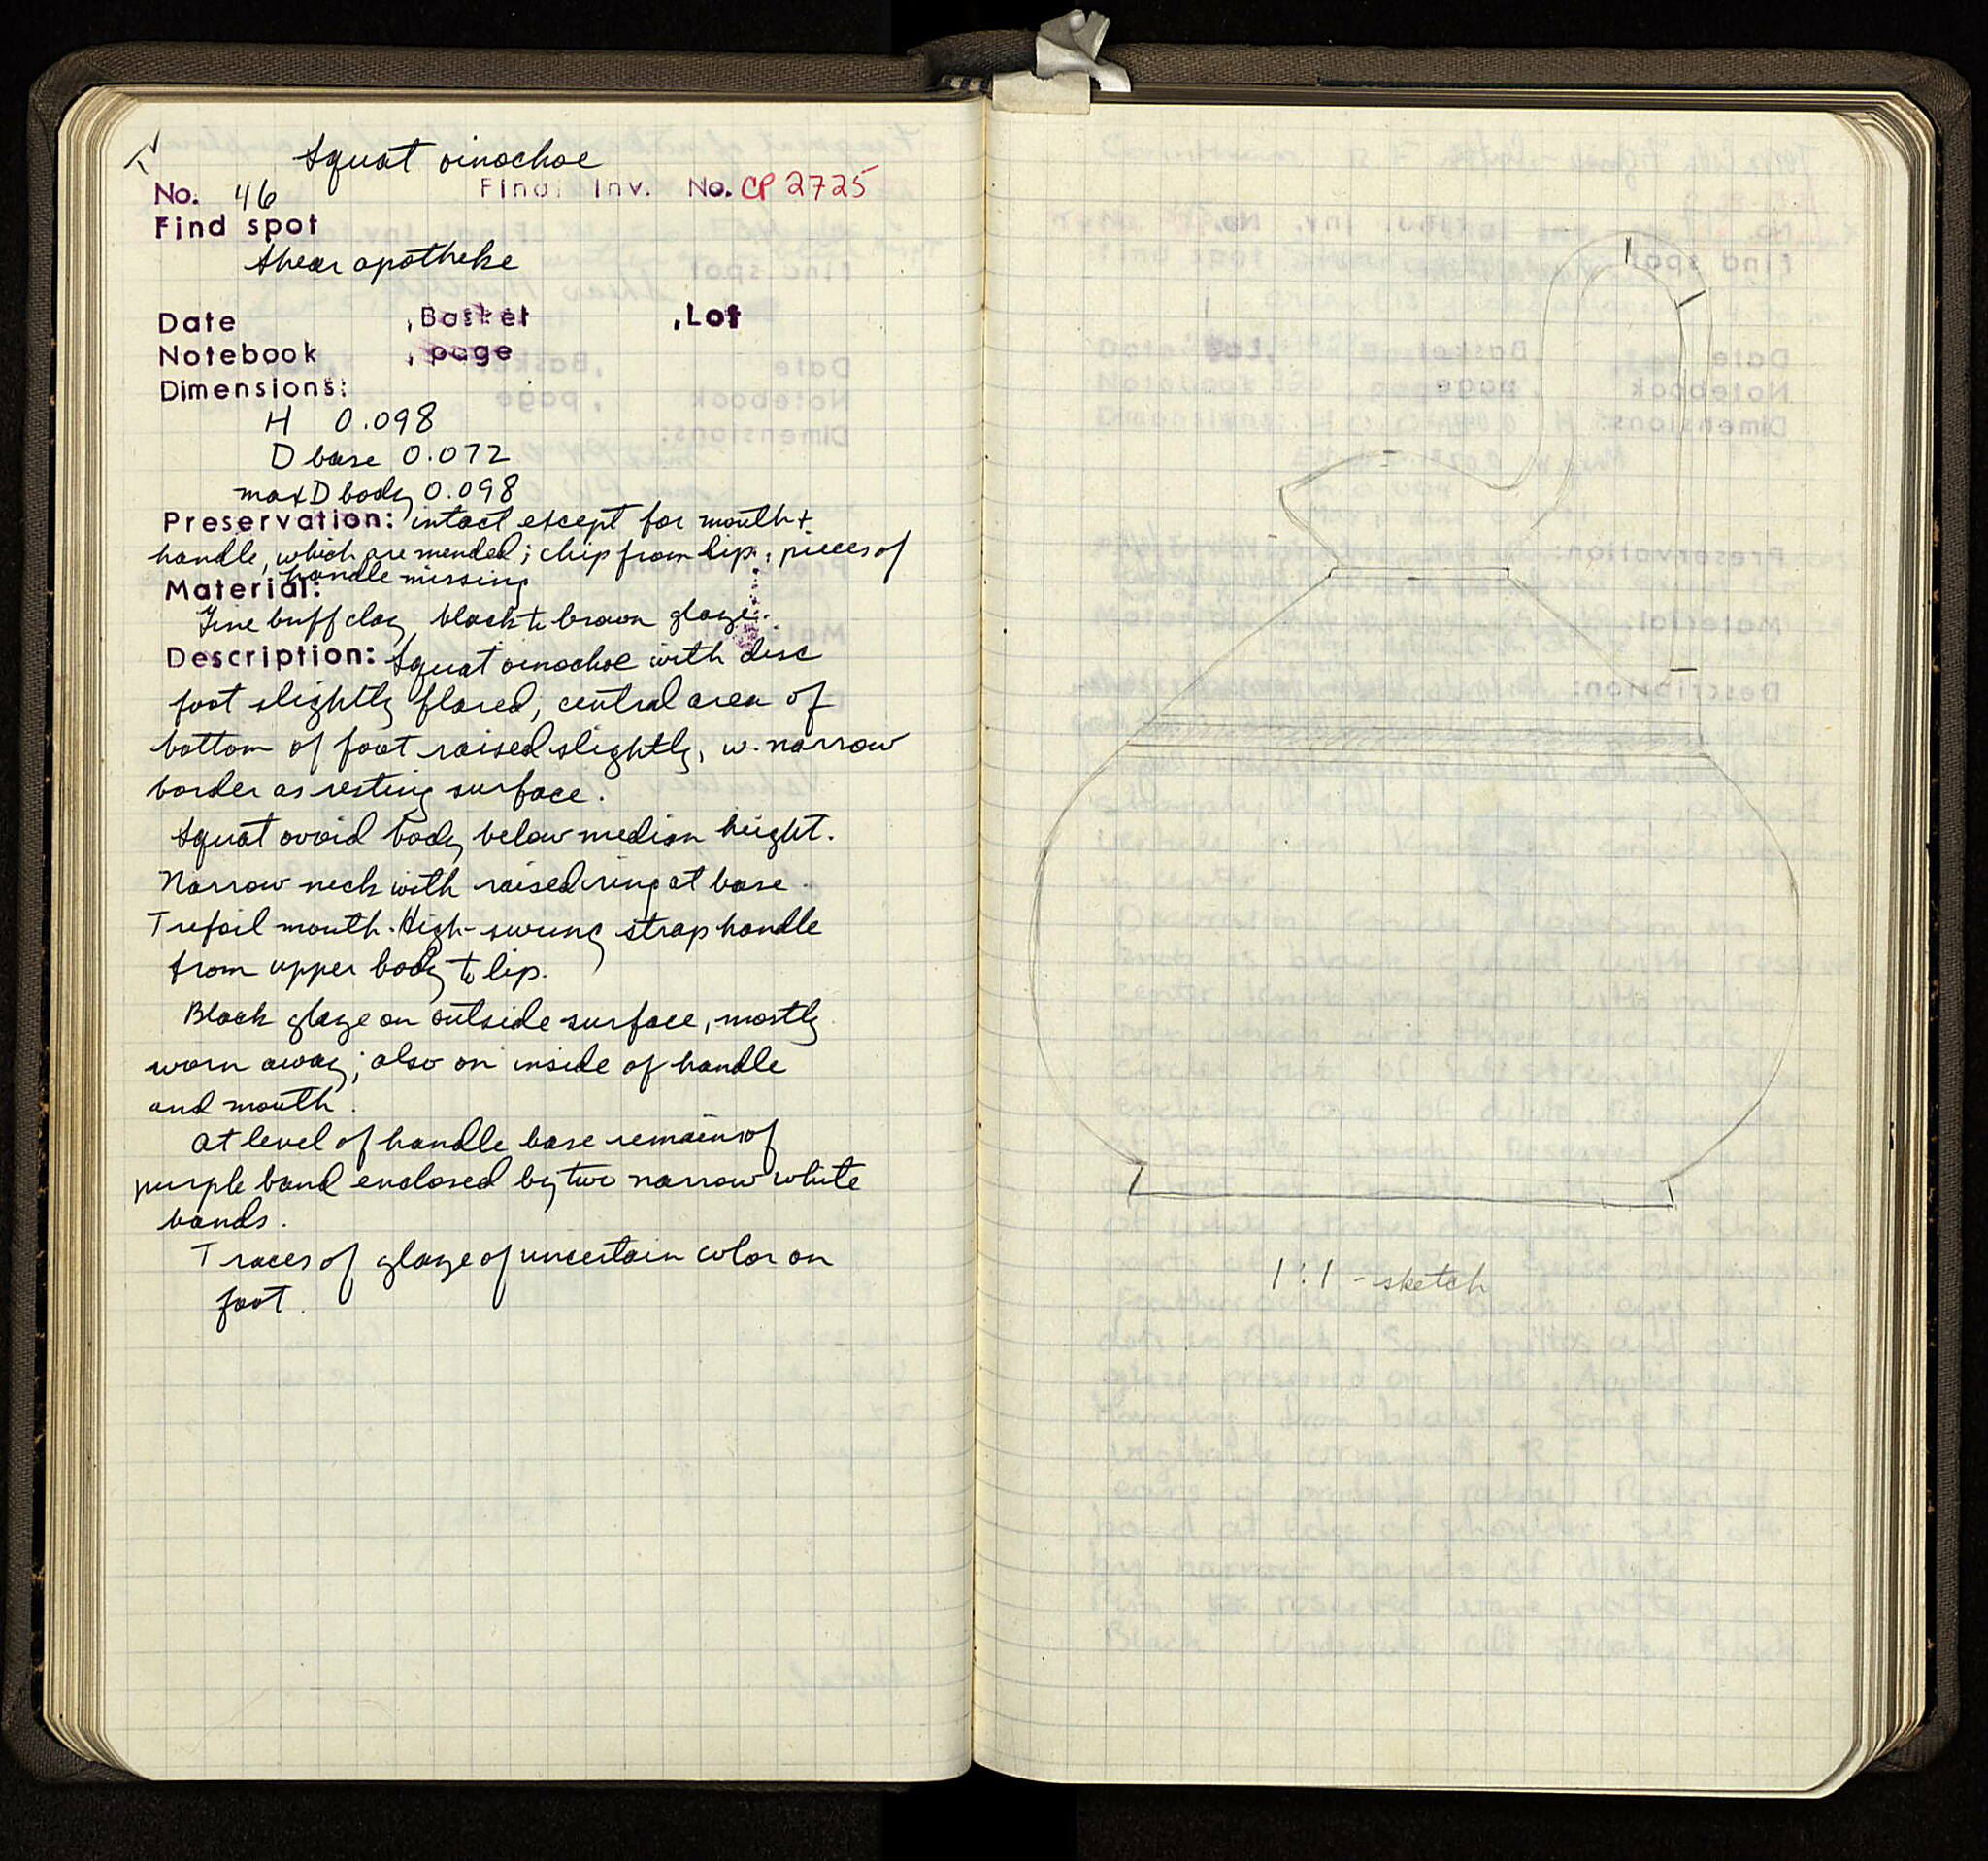 Squat oinochoe
No. 46 Final Inv. No. CP 2725
Find spot
Shear apotheke
Date , Basket , Lot
Notebook , page
Dimensions:
H 0.098
D base 0.072
max D body 0.098
Preservation: intact except for mouth +
handle, which are mended; chip from lip; pieces of
handle missing
Material:
Fine buff clay, black to brown glaze.
Description: Squat oinochoe with disc
foot slightly flared, central area of
bottom of foot raised slightly, w. narrow
border as resting surface.
Squat ovoid body below median height.
Narrow neck with raised ring at base.
Trefoil mouth. High-swung strap handle
from upper body to lip.
Black glaze on outside surface, mostly
worn away; also on inside of handle
and mouth.
At level of handle base remains of
purple band enclosed by two narrow white
bands.
Traces of glaze of uncertain color on
foot.
1:1 - sketch